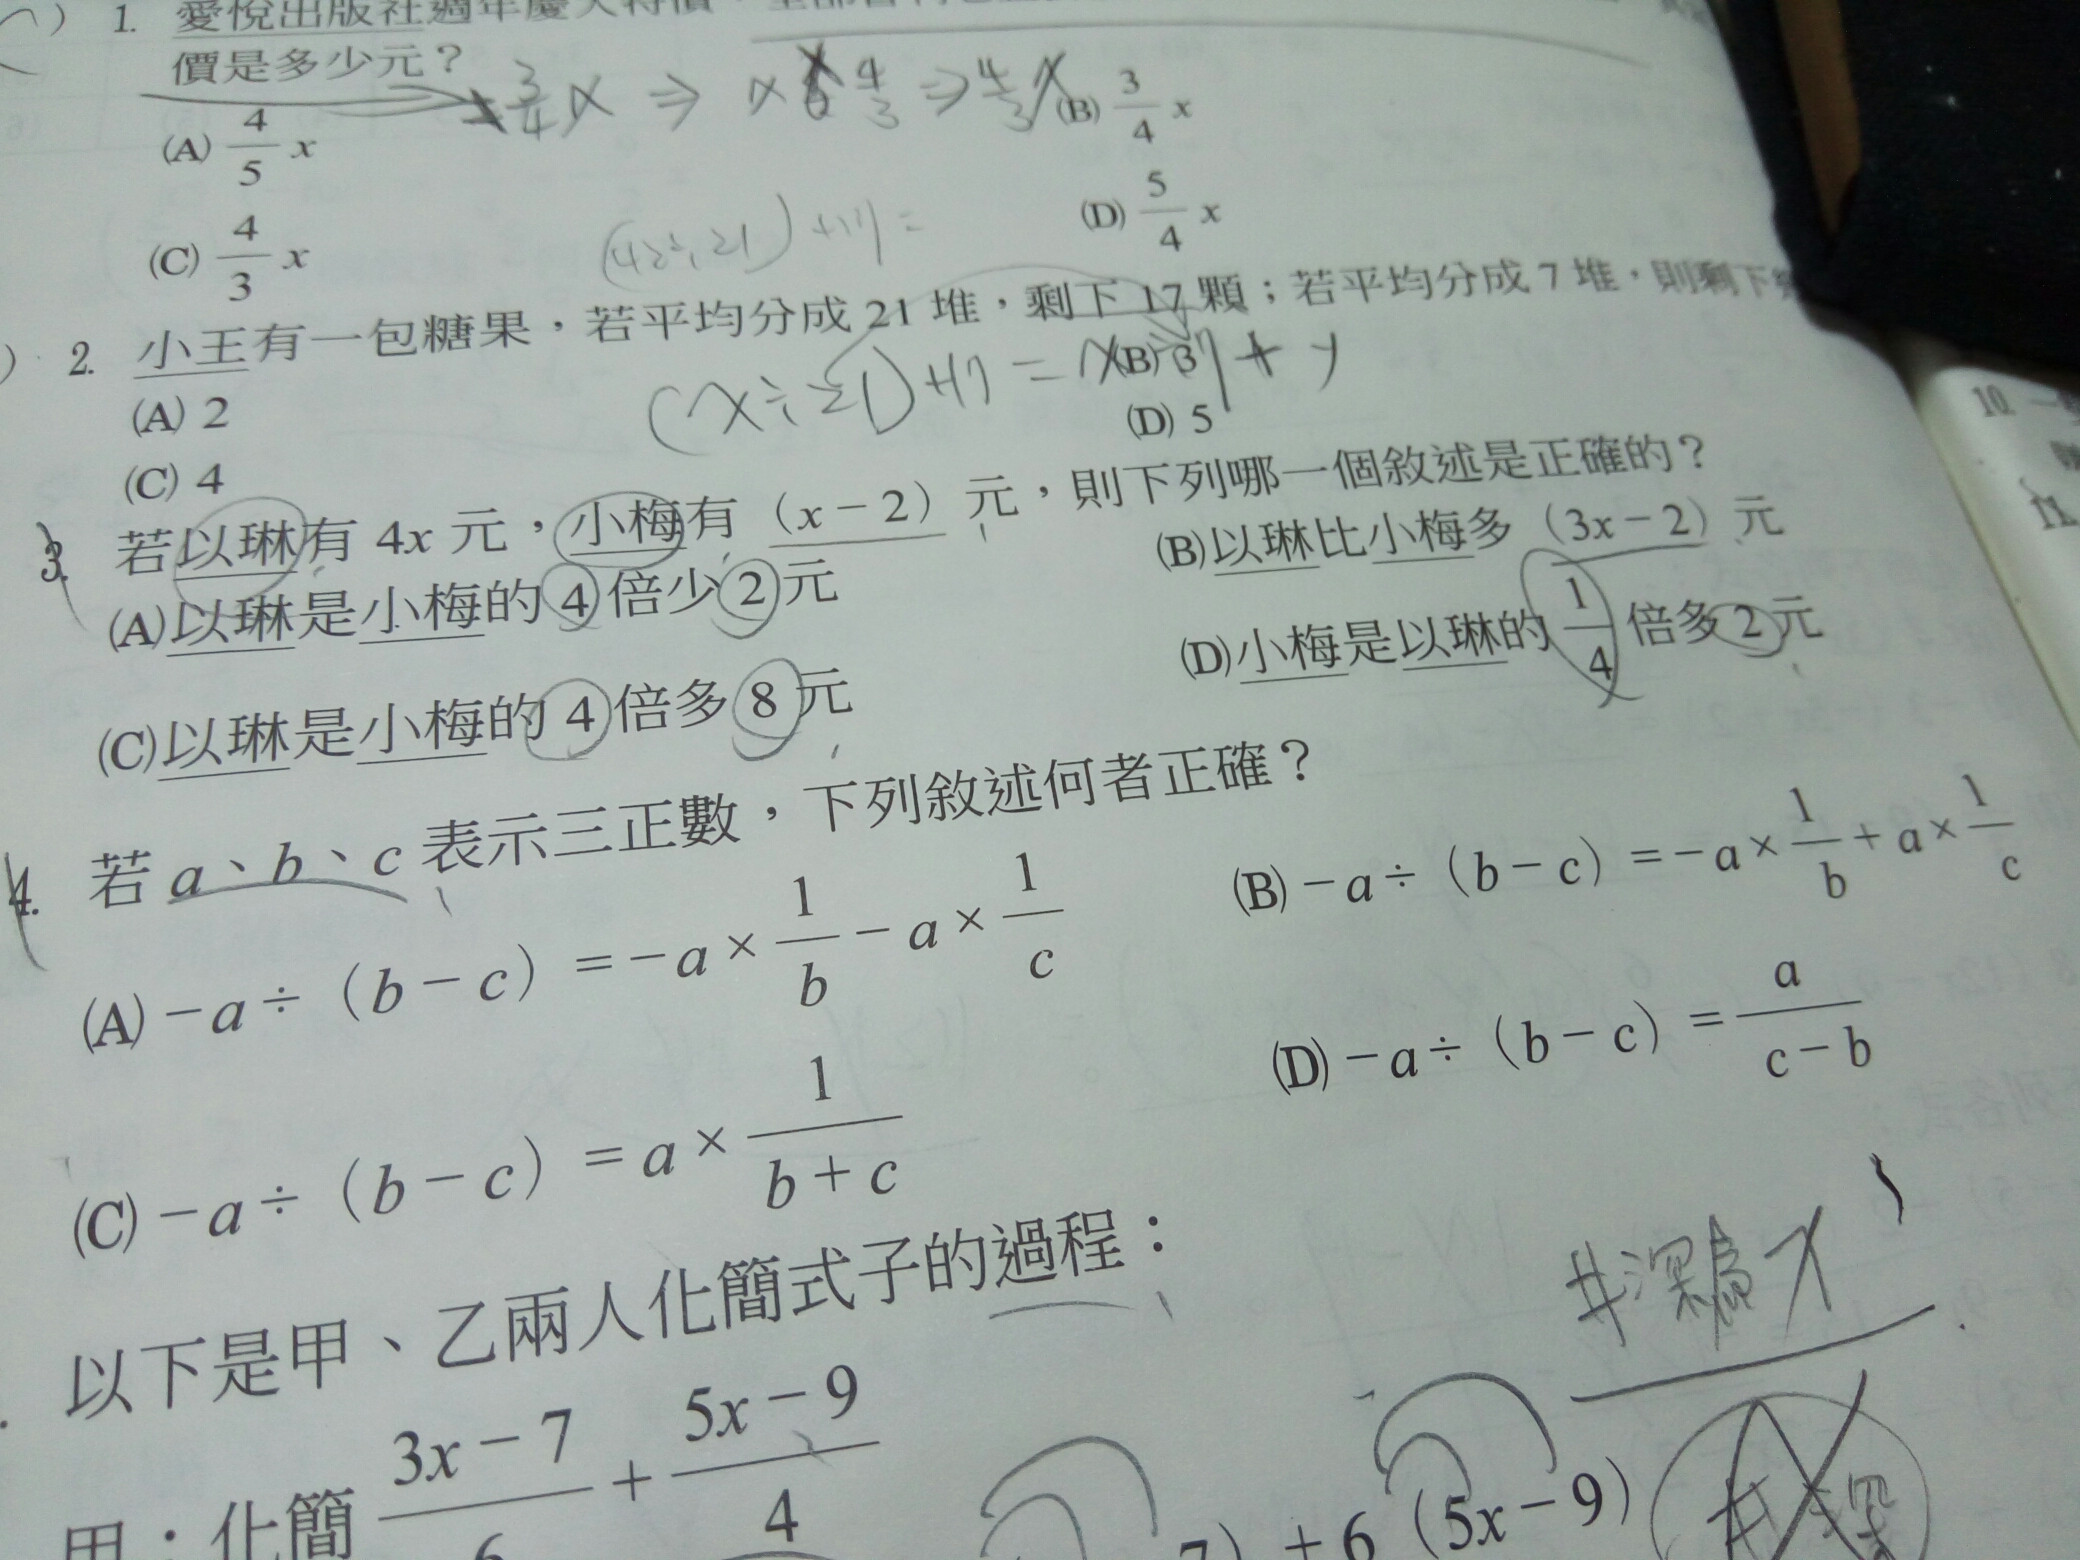 1. 愛悅出版社週年慶大特價，全部書
價是多少元？
3/4 x ⇒ x 4/3 ⇒ 4/3 x
(A) 4/5 x (B) 3/4 x
(C) 4/3 x (D) 5/4 x
2. 小王有一包糖果，若平均分成 21 堆，剩下 17 顆；若平均分成 7 堆，則剩下
(x÷21)+17 =
(A) 2 (B) 3
(C) 4 (D) 5
3. 若以琳有 4x 元，小梅有（x－2）元，則下列哪一個敘述是正確的？
(A)以琳是小梅的 4 倍少 2 元 (B)以琳比小梅多（3x－2）元
(C)以琳是小梅的 4 倍多 8 元 (D)小梅是以琳的 1/4 倍多 2 元
4. 若 a、b、c 表示三正數，下列敘述何者正確？
(A)－a÷（b－c）＝－a×1/b－a×1/c (B)－a÷（b－c）＝－a×1/b＋a×1/c
(C)－a÷（b－c）＝a×1/(b＋c) (D)－a÷（b－c）＝a/(c－b)
以下是甲、乙兩人化簡式子的過程：
甲：化簡 (3x－7)/6＋(5x－9)/4
7）＋6（5x－9）
10. 一
11.